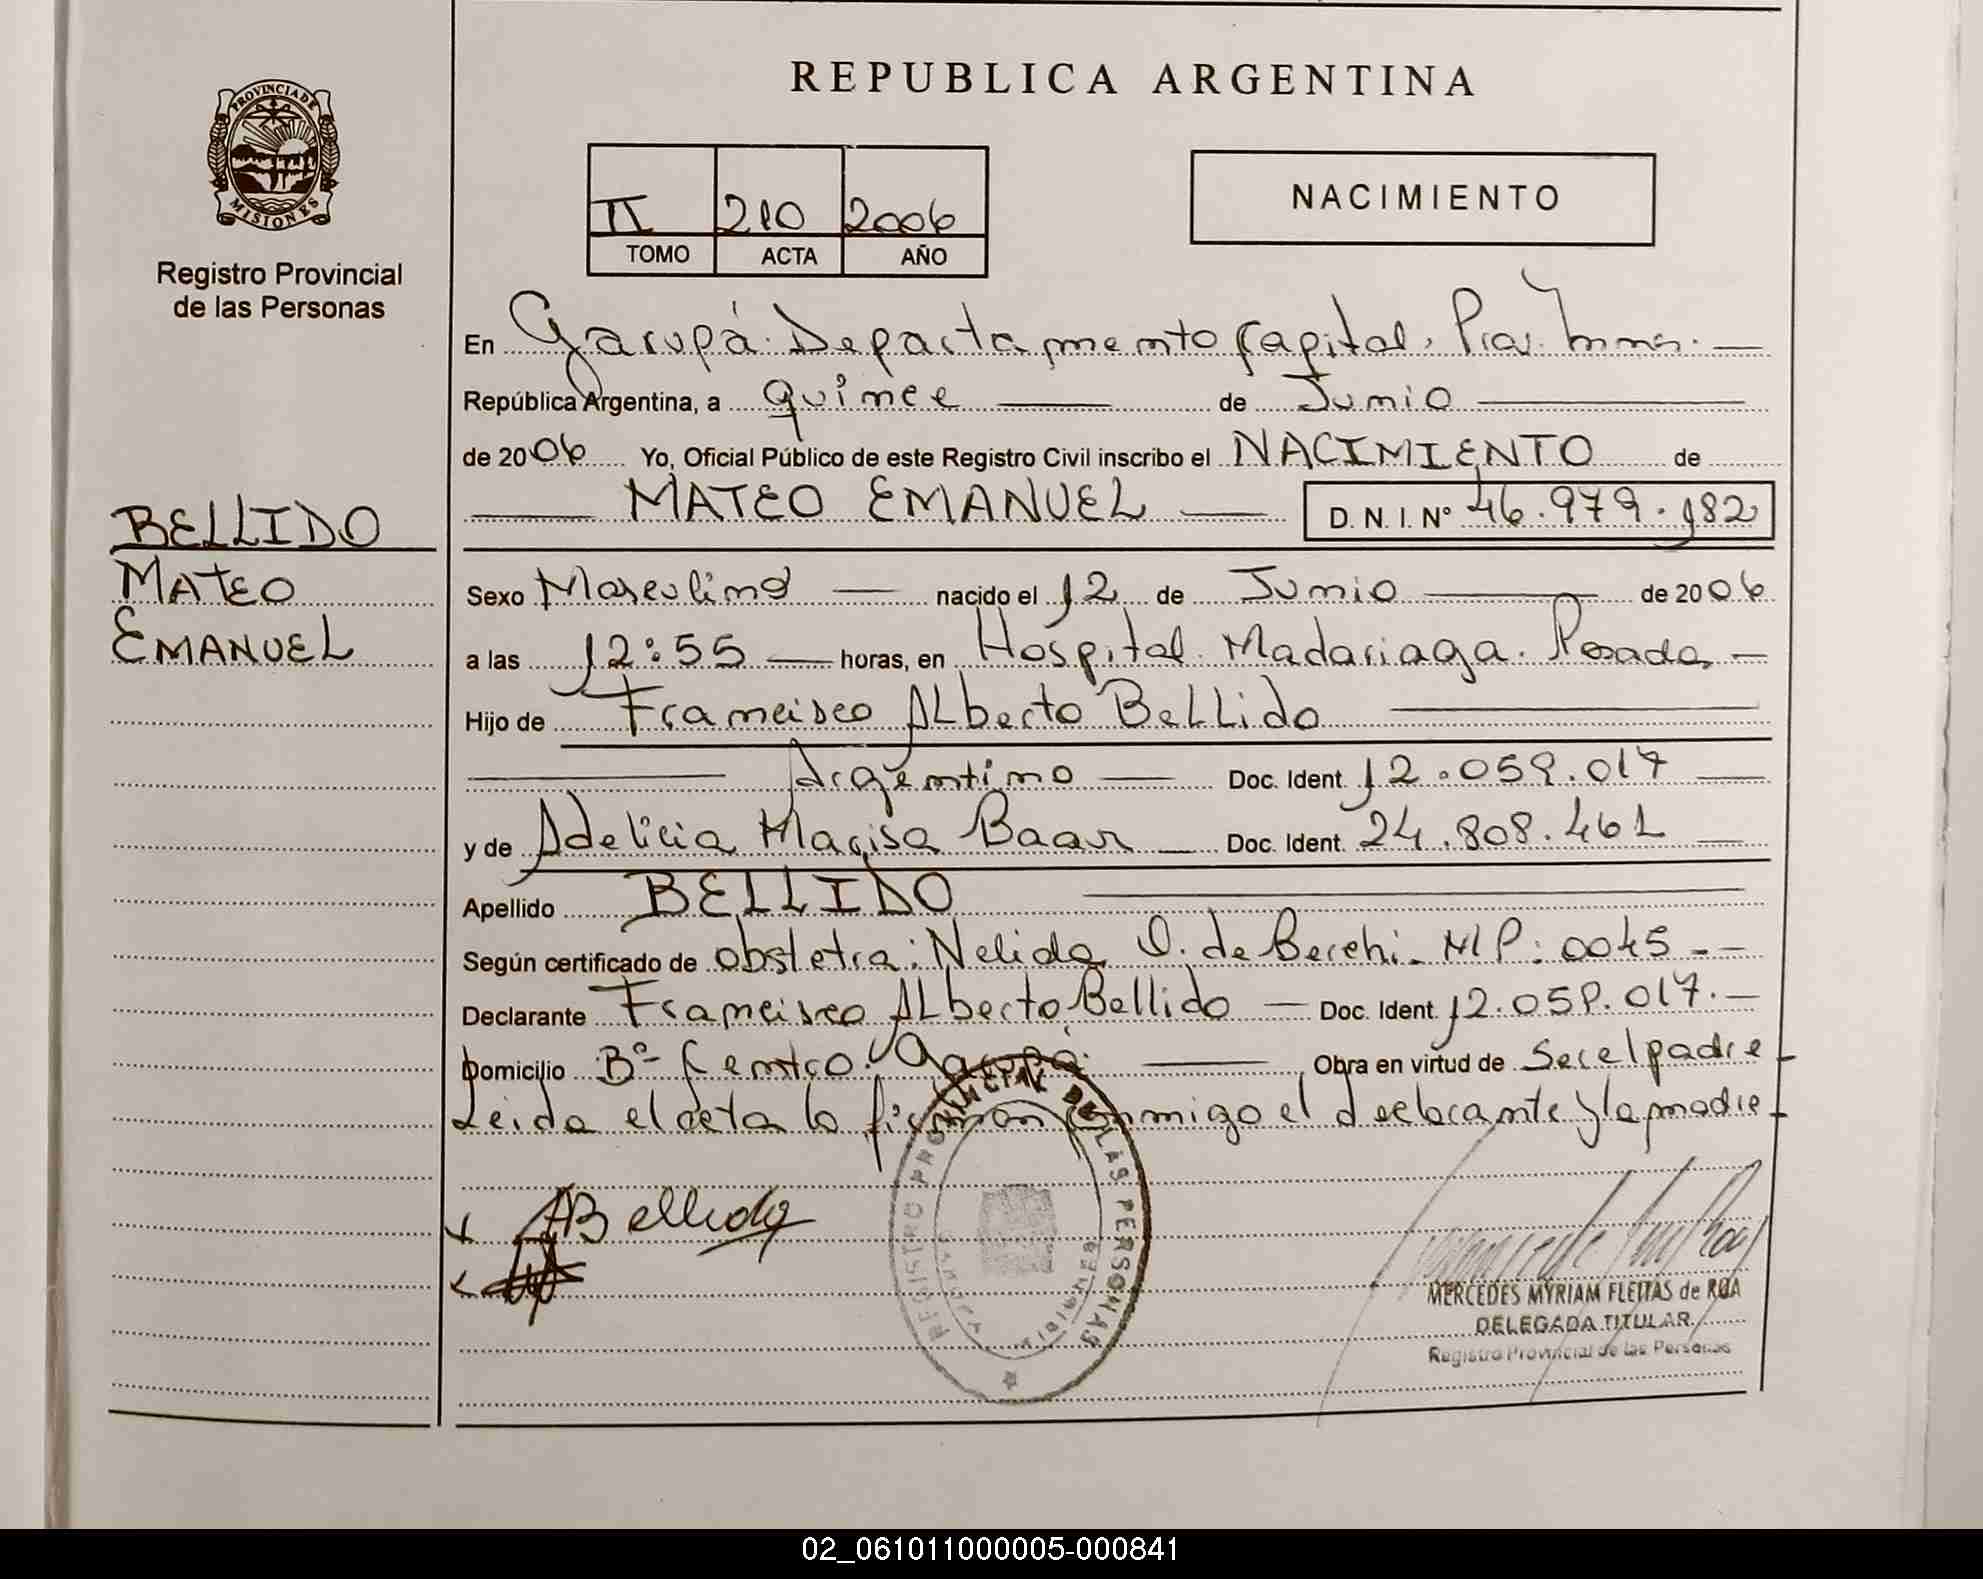 REPUBLICA ARGENTINA
PROVINCIA DE MISIONES
Registro Provincial
de las Personas
II 210 2006
TOMO ACTA AÑO
NACIMIENTO
En Garupá. Departamento Capital, Prov. Mnes.
República Argentina, a quince de Junio
de 2006 Yo, Oficial Público de este Registro Civil inscribo el NACIMIENTO de
MATEO EMANUEL D. N. I. Nº 46.979.182
BELLIDO
MATEO
EMANUEL
Sexo Masculino nacido el 12 de Junio de 2006
a las 12:55 horas, en Hospital Madariaga. Posadas
Hijo de Francisco Alberto Bellido
Argentino Doc. Ident. 12.059.017
y de Adelicia Marisa Baar Doc. Ident. 24.808.461
Apellido BELLIDO
Según certificado de obstetra: Nelida O. de Berchi. MP: 0045
Declarante Francisco Alberto Bellido Doc. Ident. 12.059.017.
Domicilio Bº Centro. Garupá. Obra en virtud de Ser el padre
Leida el acta la firman conmigo el declarante y la madre
ABellido
REGISTRO PROVINCIAL DE LAS PERSONAS
MISIONES
MERCEDES MYRIAM FLEITAS de ROA
DELEGADA TITULAR
Registro Provincial de las Personas
02_061011000005-000841